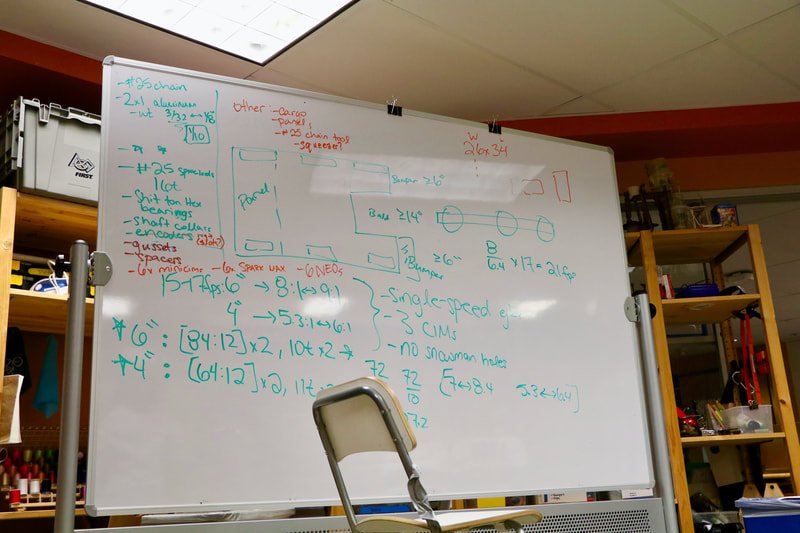 - #25 chain
- 2x1 aluminum
- wt 3/32 ↔ 1/8
1/10
- #25 sprockets
16t
- shit ton Hex
bearings
- shaft collars
- encoders
- gussets
- spacers
- 6x minicims - 6x SPARK MAX - 6 NEOs
other: - cargo
- panels
- #25 chain tool
- squeegee!
Panel
Bumper ≥6"
Ball ≥14"
≥6"
Bumper
W
26x34
8
6.4 x 17 = 21 fps
15-17fps: 6" → 8:1 ↔ 9:1
4" → 5.3:1 ↔ 6:1
- single-speed
- 3 CIMs
- no snowman holes
* 6" : [84:12] x2, 10t x2
* 4" : [64:12] x2, 11t
72
72
10
7.2
[7 ↔ 8.4 5.3 ↔ 6.4]
FIRST